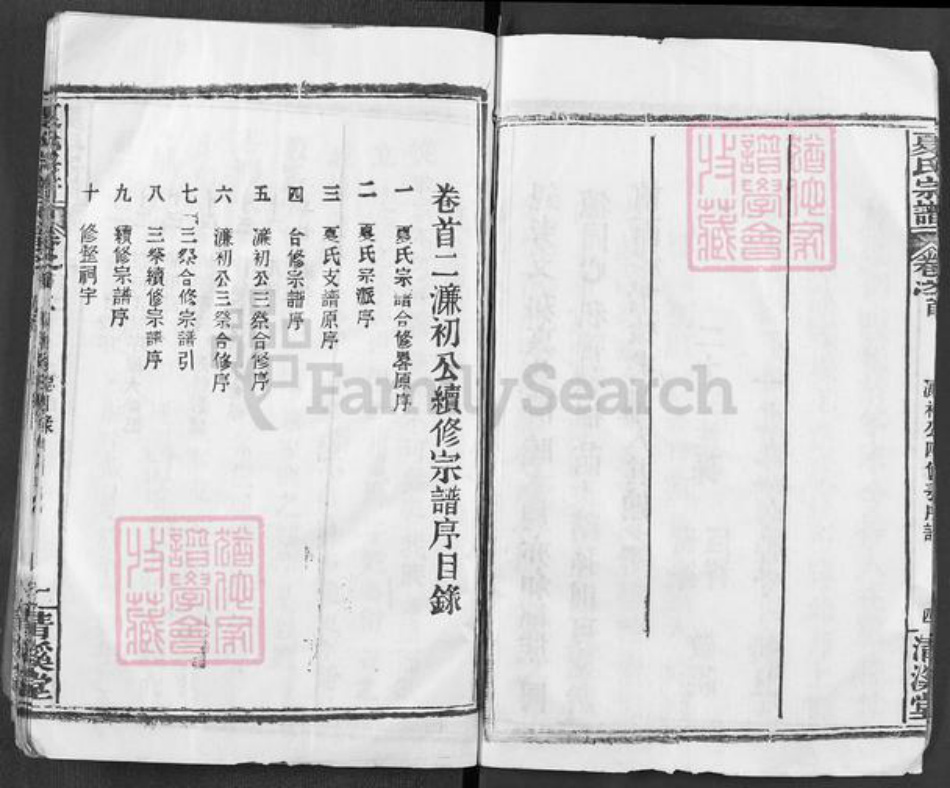 夏氏宗譜
卷之首
四
清溪堂
卷首二濂初公續修宗譜序目錄
一 夏氏宗譜合修畧原序
二 夏氏宗派序
三 夏氏支譜原序
四 合修宗譜序
五 濂初公三祭合修序
六 濂初公三祭合修序
七 三祭合修宗譜引
八 三祭續修宗譜序
九 續修宗譜序
十 修整祠宇
清溪堂
譜學會
收藏
譜學會
收藏
FamilySearch